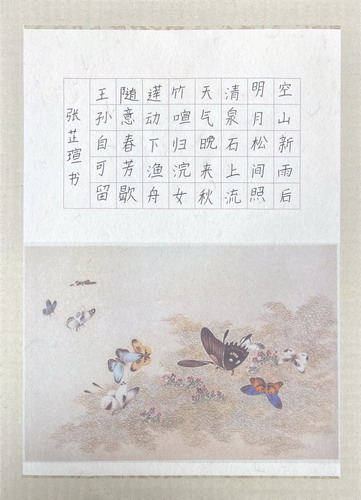 空山新雨后
明月松间照
清泉石上流
天气晚来秋
竹喧归浣女
莲动下渔舟
随意春芳歇
王孙自可留
张芷瑄书